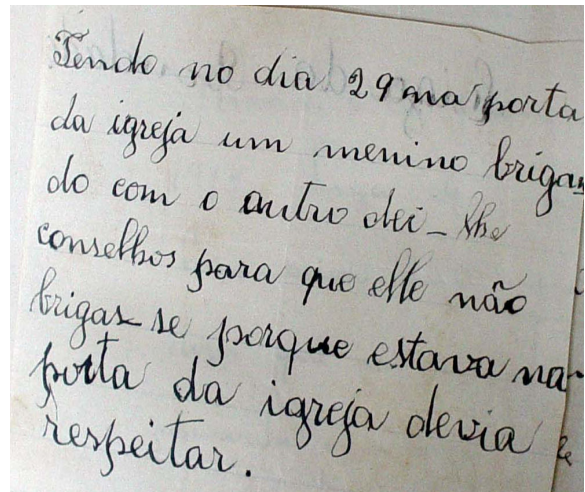 Tendo no dia 29 na porta
da igreja um menino brigan
do com o outro dei-lhe
conselhos para que elle não
brigas-se porque estava na
porta da igreja devia
respeitar.